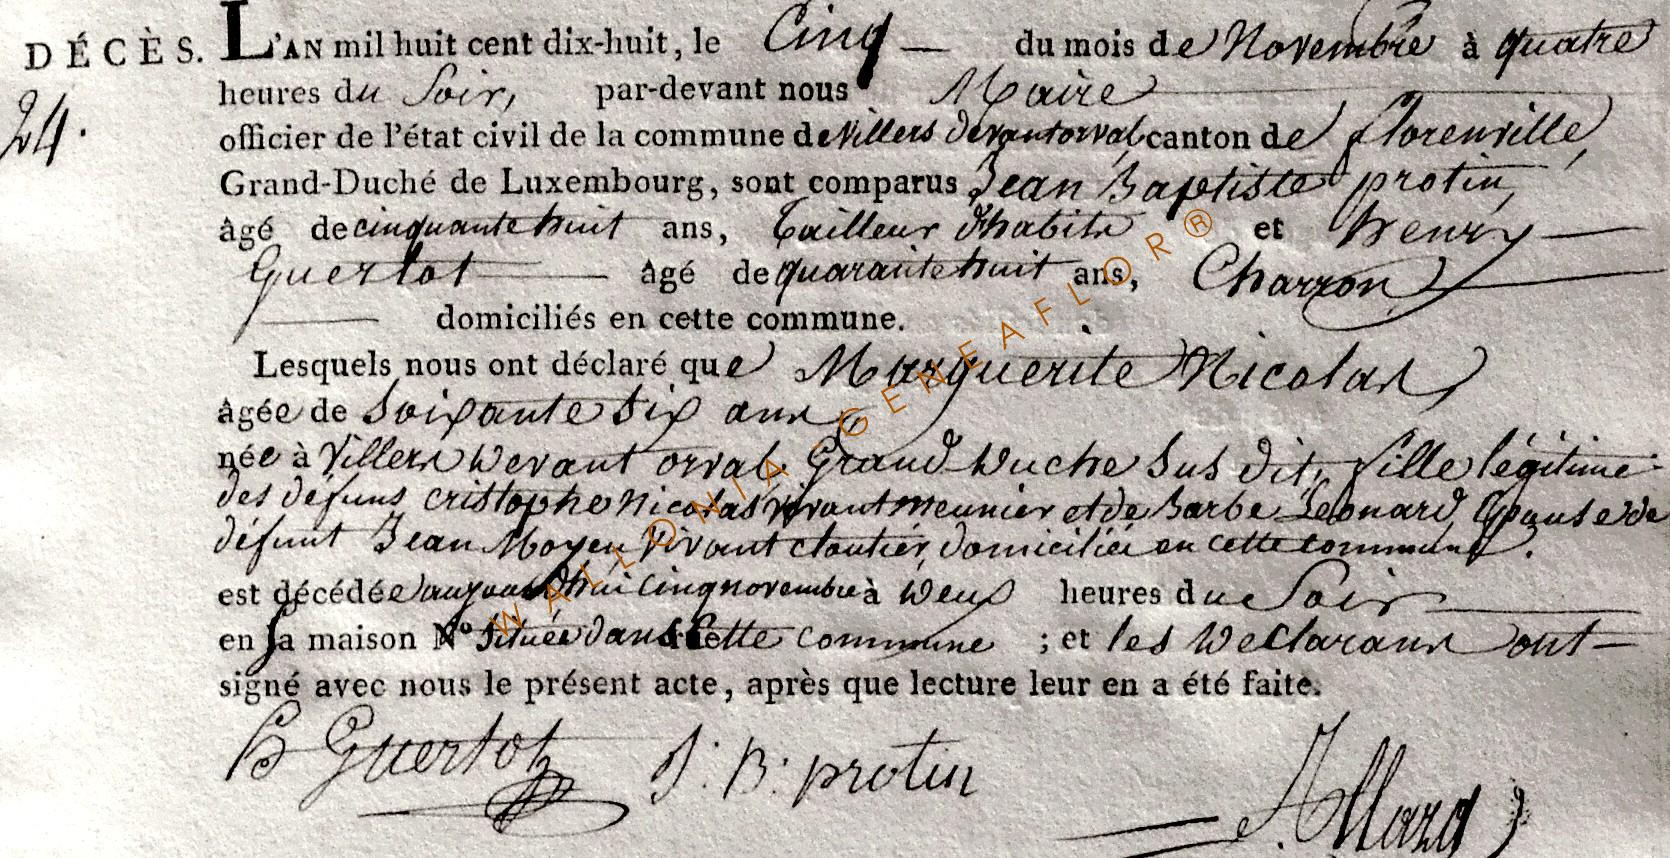 DÉCÈS. L'AN mil huit cent dix-huit, le Cinq du mois de Novembre à quatre
24. heures du Soir, par-devant nous Maire
officier de l'état civil de la commune de villers devantorval canton de florenville,
Grand-Duché de Luxembourg, sont comparus Jean Baptiste protin,
âgé de cinquante huit ans, tailleur d'habits et henry
Guertot âgé de quarante huit ans, Charron
domiciliés en cette commune.
Lesquels nous ont déclaré que Marguerite Nicolas
âgée de Soixante Six ans
née à Villers Devant orval. Grand Duche Sus dit, fille légitime
des défuns cristophe Nicolas vivant meunier et de Barbe Léonard, Epouse de
défunt Jean Moyen vivant cloutier, domiciliée en cette commune.
est décédée aujourd'hui cinq novembre à Deux heures du Soir
en sa maison N° Située dans Cette commune ; et les Declarans ont
signé avec nous le présent acte, après que lecture leur en a été faite.
H Guertot J: B: protin
Allard
WALLONIA-GENEAFLOR®